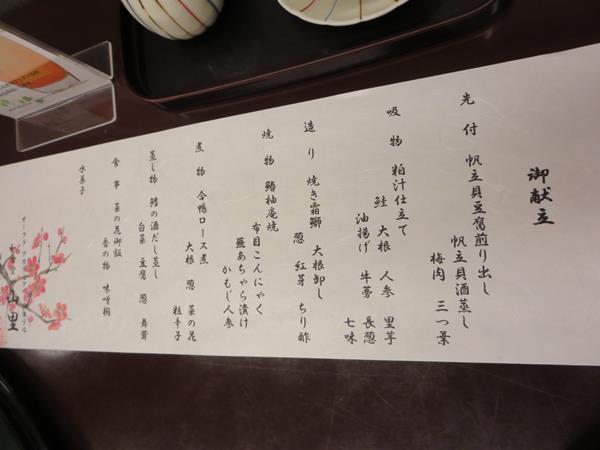 御献立
先付 帆立貝豆腐煎り出し
帆立貝酒蒸し
梅肉 三つ葉
吸物 粕汁仕立て
鮭 大根 人参 里芋
油揚げ 牛蒡 長葱
七味
造り 焼き霜鰤 大根卸し
葱 紅芽 ちり酢
焼物 鰆柚庵焼
布目こんにゃく
蕪あちゃら漬け
かもじ人参
煮物 合鴨ロース煮
大根 葱 菜の花
粒辛子
蒸し物 鱈の酒だし蒸し
白菜 豆腐 葱 舞茸
食事 菜の花御飯
香の物 味噌椀
水菓子
山里